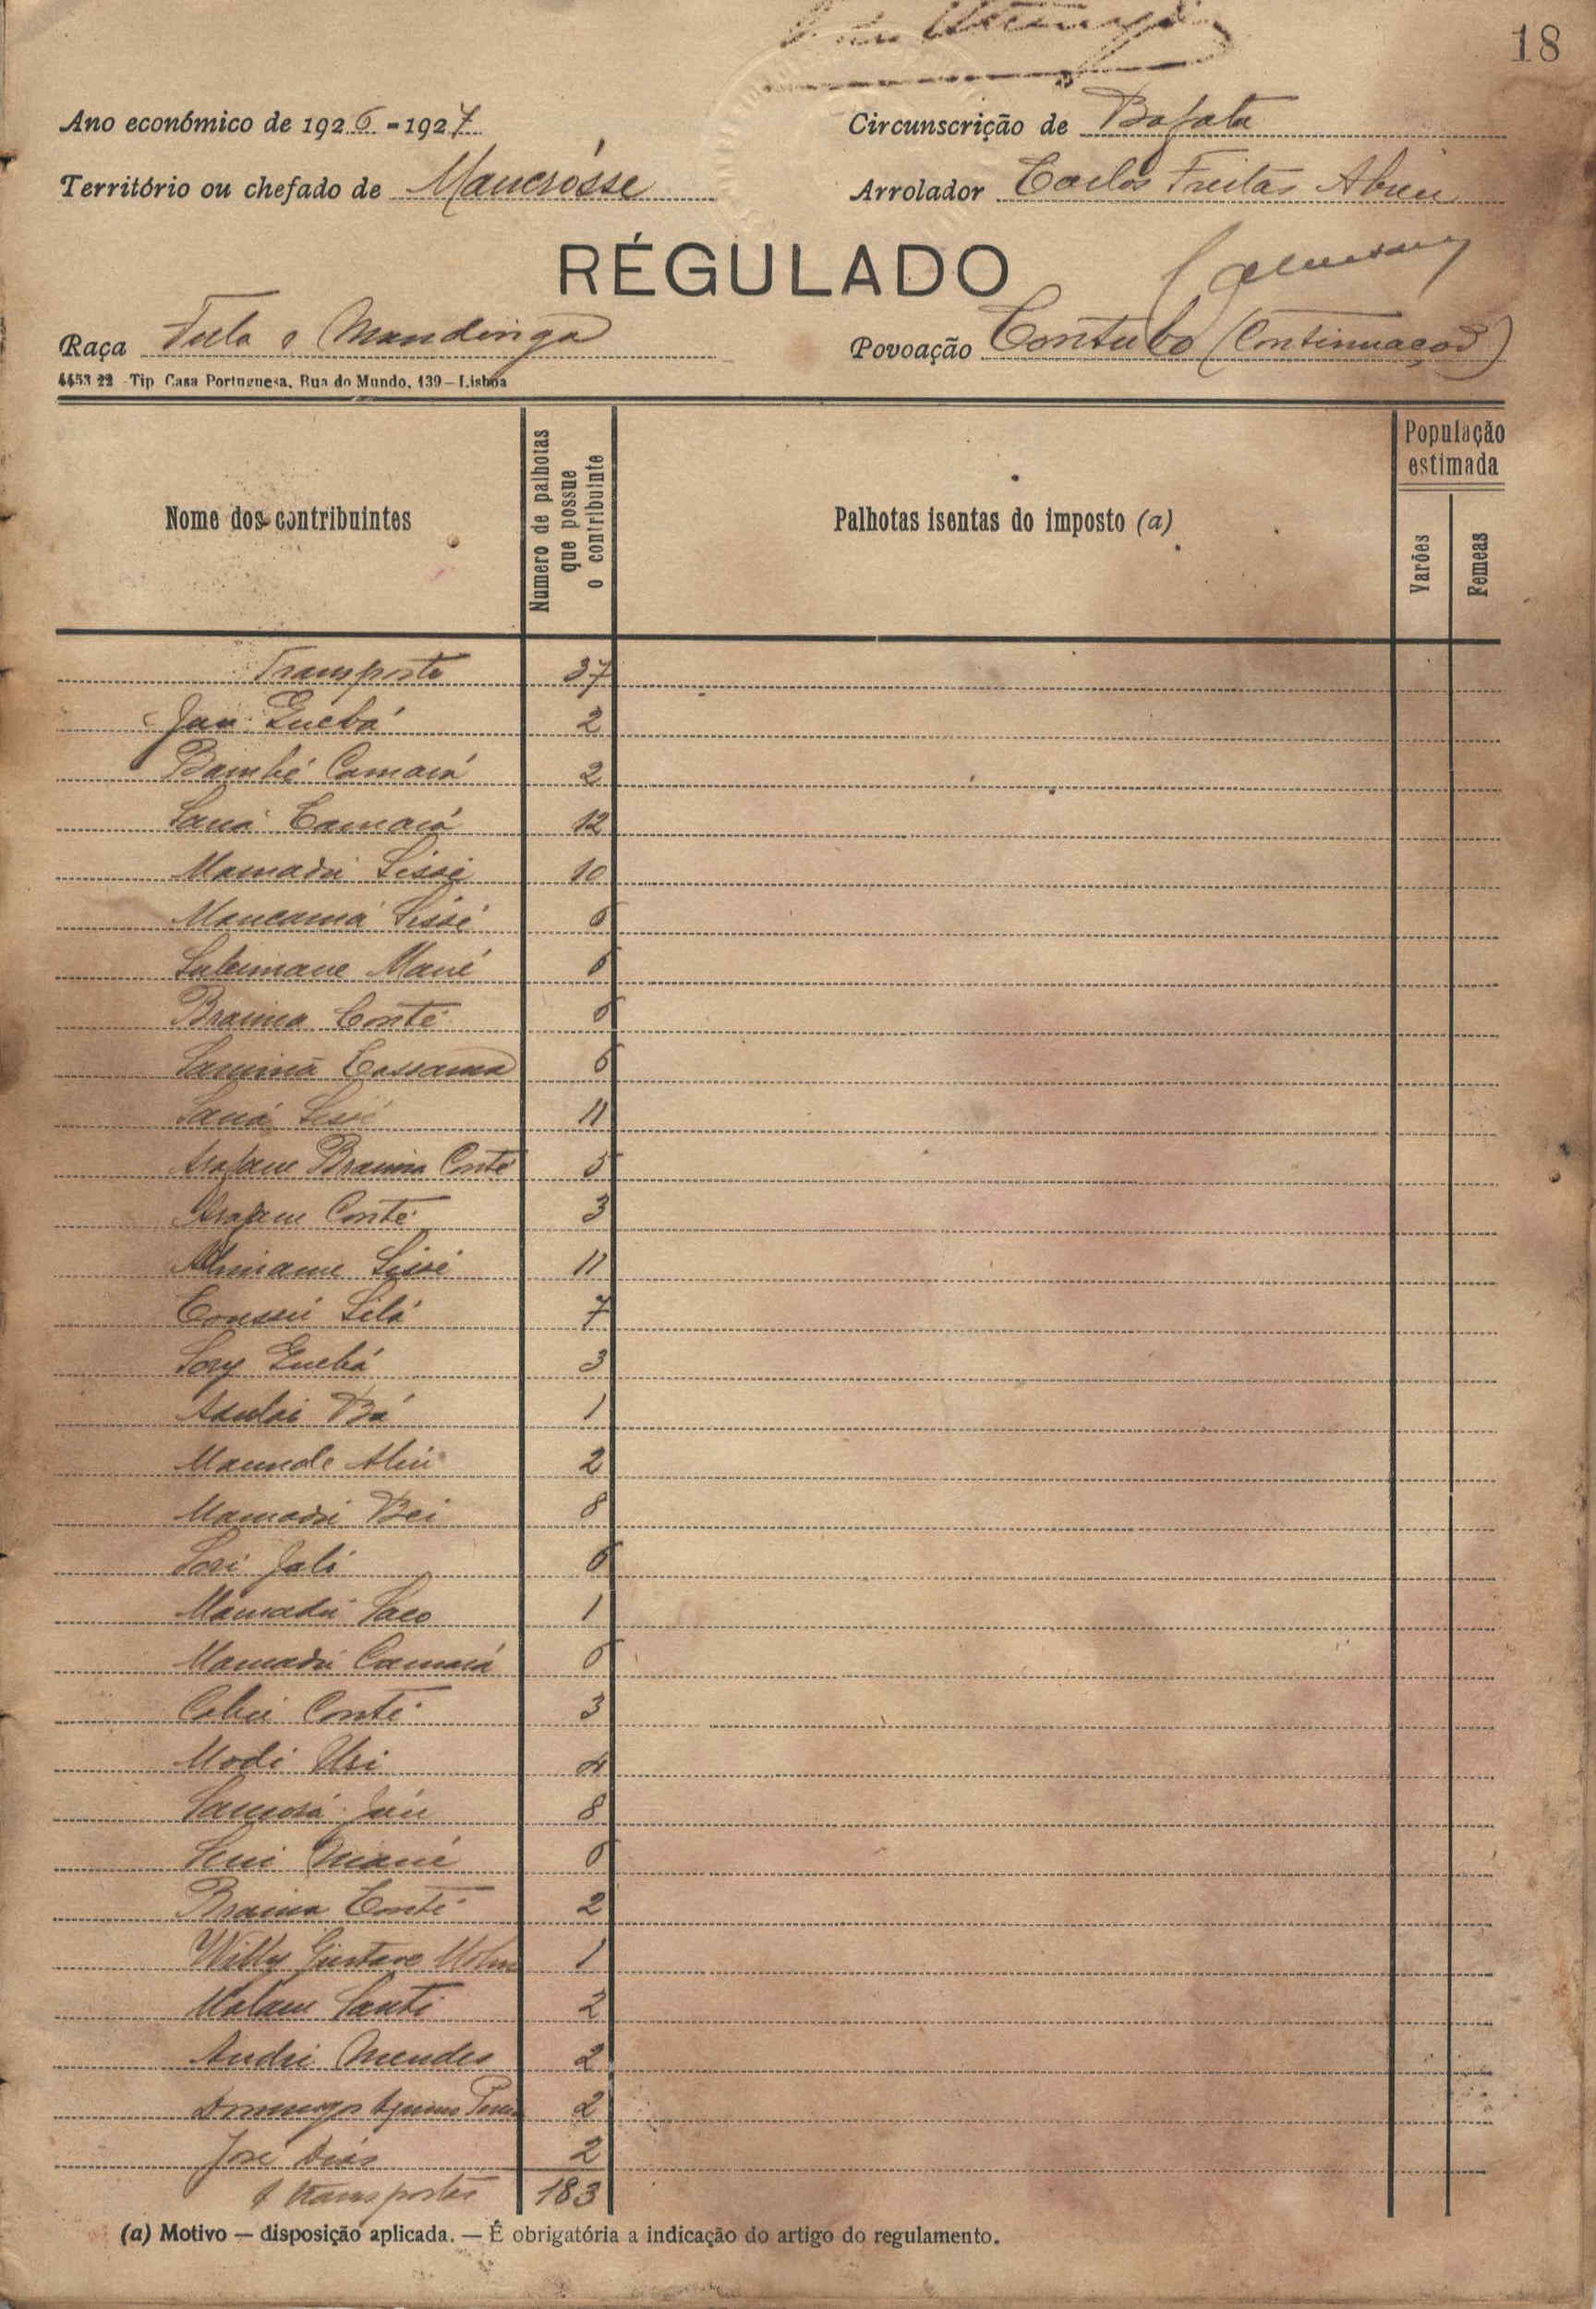 18
Ano económico de 1926-1927
Circunscrição de Bafata
Território ou chefado de Mancrósse
Arrolador Carlos Freitas Abreu
RÉGULADO
Raça Fula e Mandinga
Povoação Contubo (Continuação)
4453 22 - Tip. Casa Portuguesa, Rua do Mundo, 139 - Lisboa
Nome dos contribuintes
Numero de palhotas que possue o contribuinte
Palhotas isentas do imposto (a)
População estimada
Varões
Femeas
Transporte 37
Jau Guebá 2
Bambé Camará 2
Saná Camará 12
Mamadú Sissé 10
Mancamá Sissé 6
Suleimane Mané 6
Braima Conté 6
Lamina Cassama 6
Saná Sissé 11
Arafane Braima Conté 5
Arafane Conté 3
Almiame Sissé 11
Silá 7
Sory Guebá 3
Adulai Bá 1
Aliu 2
Mamadú Bei 8
Sori Jali 6
Mamadú Saco 1
Mamadú Camará 6
Conté 3
Modi Uri 4
8
Seni 6
Braima Conté 2
Willy Gustave 1
Malam Santi 2
André Mendes 2
Domingos 2
José Dias 2
A transportar 183
(a) Motivo — disposição aplicada. — É obrigatória a indicação do artigo do regulamento.